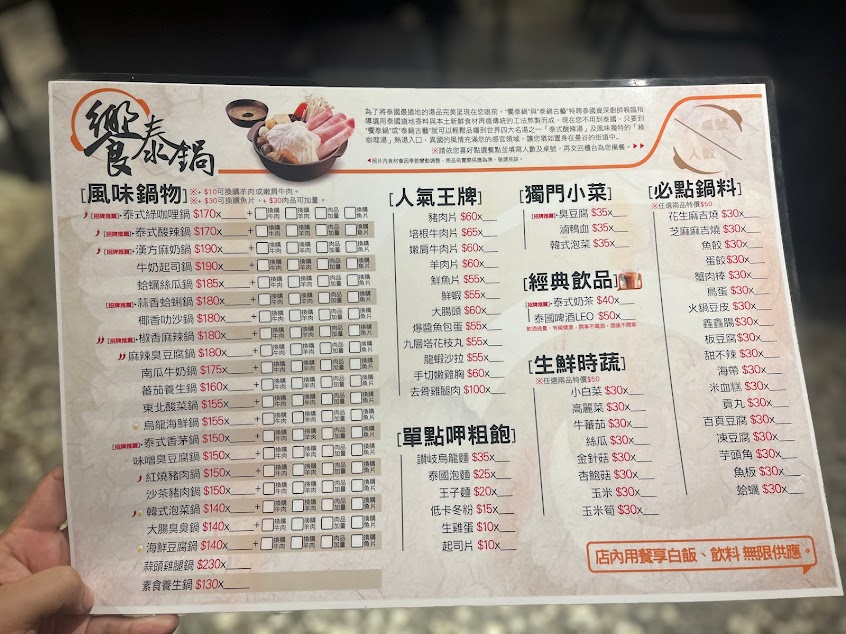 饗泰鍋
為了將泰國最道地的湯品完美呈現在您眼前,"饗泰鍋"與"泰鍋古藝"特聘泰國資深廚師親臨指
導選用泰國道地香料與本土新鮮食材再循傳統的工法熬製而成。現在您不用到泰國,只要到
"饗泰鍋"或"泰鍋古藝"就可以輕鬆品嚐到世界四大名湯之一「泰式酸辣湯」及風味獨特的「綠
咖哩湯」熱湯入口,異國的風情充滿您的感官領域,讓您猶如置身在曼谷的街道中...
※請依您喜好點選餐點並填寫人數及桌號,再交回櫃台為您備餐。
桌號
人數
[風味鍋物]
※+ $10可換購羊肉或嫩肩牛肉。
※+ $30可換購魚片,+ $30肉品可加量。
[招牌推薦]•泰式綠咖哩鍋 $170x + □換購牛肉 □換購羊肉 □肉品加量 □換購魚片
[招牌推薦]•泰式酸辣鍋 $170x + □換購牛肉 □換購羊肉 □肉品加量 □換購魚片
[招牌推薦]•漢方麻奶鍋 $190x + □換購牛肉 □換購羊肉 □肉品加量 □換購魚片
牛奶起司鍋 $190x + □換購牛肉 □換購羊肉 □肉品加量 □換購魚片
蛤蠣絲瓜鍋 $185x + □換購牛肉 □換購羊肉 □肉品加量 □換購魚片
[招牌推薦]•蒜香蛤蜊鍋 $180x + □換購牛肉 □換購羊肉 □肉品加量 □換購魚片
椰香叻沙鍋 $180x + □換購牛肉 □換購羊肉 □肉品加量 □換購魚片
[招牌推薦]•椒香麻辣鍋 $180x + □換購牛肉 □換購羊肉 □肉品加量 □換購魚片
麻辣臭豆腐鍋 $180x + □換購牛肉 □換購羊肉 □肉品加量 □換購魚片
南瓜牛奶鍋 $175x + □換購牛肉 □換購羊肉 □肉品加量 □換購魚片
蕃茄養生鍋 $160x + □換購牛肉 □換購羊肉 □肉品加量 □換購魚片
東北酸菜鍋 $155x + □換購牛肉 □換購羊肉 □肉品加量 □換購魚片
烏龍海鮮鍋 $155x + □換購牛肉 □換購羊肉 □肉品加量 □換購魚片
[招牌推薦]•泰式香茅鍋 $150x + □換購牛肉 □換購羊肉 □肉品加量 □換購魚片
味噌臭豆腐鍋 $150x + □換購牛肉 □換購羊肉 □肉品加量 □換購魚片
紅燒豬肉鍋 $150x + □換購牛肉 □換購羊肉 □肉品加量 □換購魚片
沙茶豬肉鍋 $150x + □換購牛肉 □換購羊肉 □肉品加量 □換購魚片
韓式泡菜鍋 $140x + □換購牛肉 □換購羊肉 □肉品加量 □換購魚片
大腸臭臭鍋 $140x + □換購牛肉 □換購羊肉 □肉品加量 □換購魚片
海鮮豆腐鍋 $140x + □換購牛肉 □換購羊肉 □肉品加量 □換購魚片
蒜頭雞腿鍋 $230x
素食養生鍋 $130x
[人氣王牌]
豬肉片 $60x
培根牛肉片 $65x
嫩肩牛肉片 $60x
羊肉片 $60x
鮮魚片 $55x
鮮蝦 $55x
大腸頭 $60x
爆醬魚包蛋 $55x
九層塔花枝丸 $55x
龍蝦沙拉 $55x
手切嫩雞胸 $60x
去骨雞腿肉 $100x
[單點呷粗飽]
讚岐烏龍麵 $35x
泰國泡麵 $25x
王子麵 $20x
低卡冬粉 $15x
生雞蛋 $10x
起司片 $10x
[獨門小菜]
[招牌推薦]•臭豆腐 $35x
滷鴨血 $35x
韓式泡菜 $35x
[經典飲品]
[招牌推薦]•泰式奶茶 $40x
泰國啤酒LEO $50x
[生鮮時蔬]
※任選兩品特價$50
小白菜 $30x
高麗菜 $30x
牛蕃茄 $30x
絲瓜 $30x
金針菇 $30x
杏鮑菇 $30x
玉米 $30x
玉米筍 $30x
[必點鍋料]
※任選兩品特價$50
花生麻吉燒 $30x
芝麻麻吉燒 $30x
魚餃 $30x
蛋餃 $30x
蟹肉棒 $30x
鳥蛋 $30x
火鍋豆皮 $30x
鑫鑫腸 $30x
板豆腐 $30x
甜不辣 $30x
海帶 $30x
米血糕 $30x
貢丸 $30x
百頁豆腐 $30x
凍豆腐 $30x
芋頭角 $30x
魚板 $30x
蛤蠣 $30x
店內用餐享白飯、飲料 無限供應。